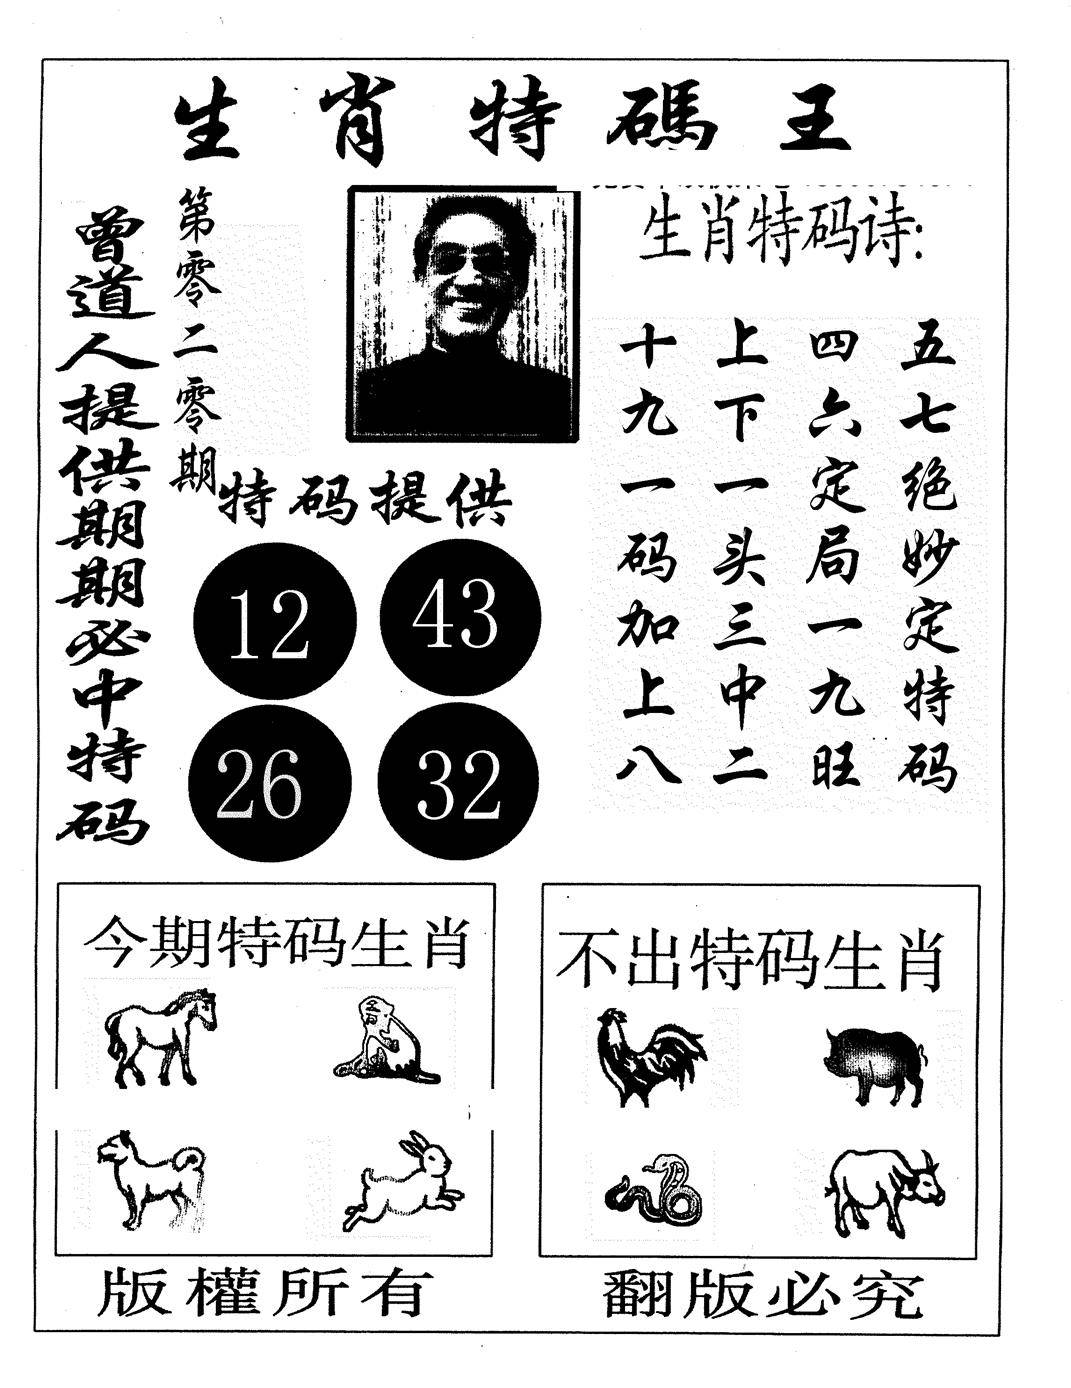 生肖特碼王
曾道人提供期期必中特码
第零二零期
生肖特码诗:
五七绝妙定特码
四六定局一九旺
上下一头三中二
十九一码加上八
特码提供
12 43
26 32
今期特码生肖
不出特码生肖
版權所有
翻版必究